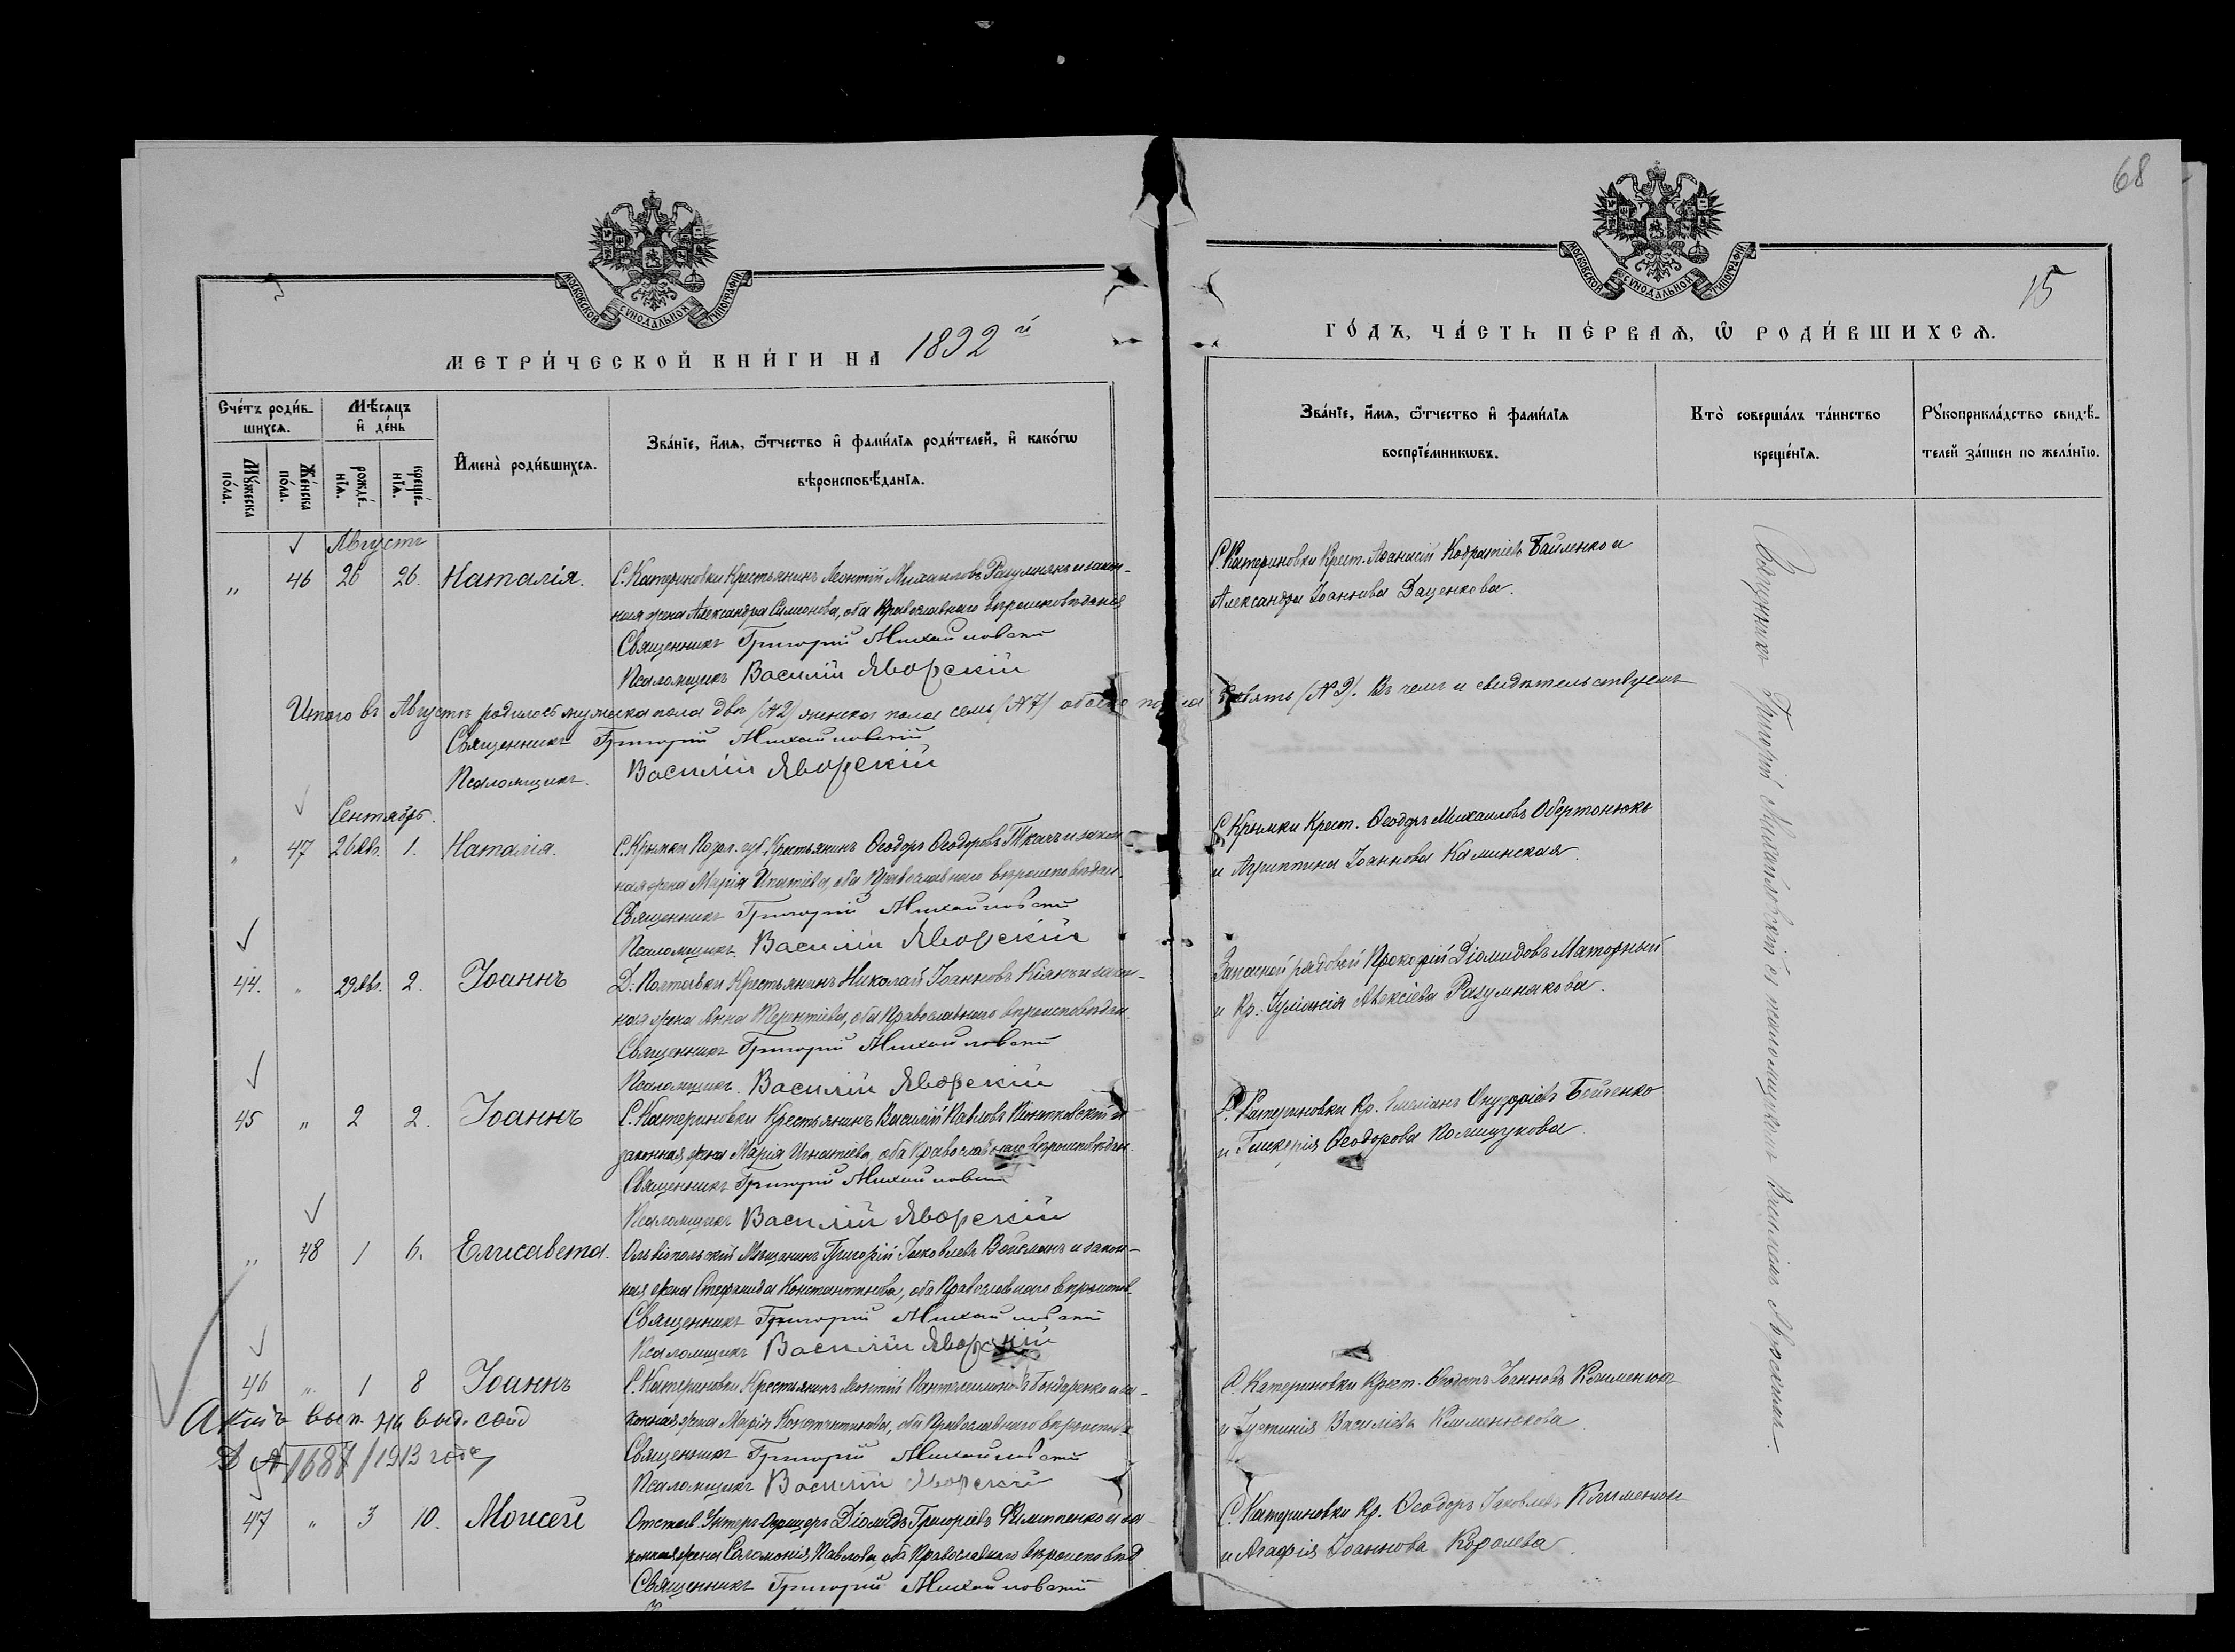 68
15
МОСКОВСКОЙ СѴНОДАЛЬНОЙ ТИПОГРАФІИ
МОСКОВСКОЙ СѴНОДАЛЬНОЙ ТИПОГРАФІИ
МЕТРИ́ЧЕСКОЙ КНИ́ГИ НА 1892 й
ГО́ДЪ, ЧА́СТЬ ПЕ́РВАѦ, Ѡ РОДИ́ВШИХСѦ.
Сче́тъ роди́в-
шихсѧ.
Мѣ́сѧцъ
и де́нь
Мꙋ́жеска
по́ла.
Же́нска
по́ла.
рожде́-
нїѧ.
креще́-
нїѧ.
И҆мена̀ роди́вшихсѧ.
Зва́нїе, и҆́мѧ, ѻ҆́тчество и҆ фами́лїѧ роди́телей, и҆ како́гѡ
вѣроисповѣ́данїѧ.
Зва́нїе, и҆́мѧ, ѻ҆́тчество и҆ фами́лїѧ
воспрїе́мникѡвъ.
Кто̀ соверша́лъ та́инство
креще́нїѧ.
Рꙋкоприкла́дство свидѣ́-
телей за́писи по жела́нїю.
Августъ
" 46 26 26. Наталія. С. Катериновки Крестьянинъ Леонтій Михаиловъ Разумнякъ и закон-
ная жена Александра Симеонова, оба Православнаго вѣроисповѣданія
Священникъ Григорій Михайловскій
Псаломщикъ Василій Яворскій
С. Катериновки Крест. Аѳанасій Кодратіевъ Байленко и
Александра Іоаннова Даценкова.
Итого въ Августѣ родилось мужеска пола два (№ 2) женска пола семь (№ 7) обоего пола девять (№ 9). Въ чемъ и свидѣтельствуемъ
Священникъ Григорій Михайловскій
Псаломщикъ. Василій Яворскій
Сентябрь.
" 47 26 Авг. 1. Наталія. С. Крымки Подол. губ. Крестьянинъ Ѳеодоръ Ѳеодоровъ Ткачъ и закон-
ная жена Марія Игнатіева, оба Православнаго вѣроисповѣдан.
Священникъ Григорій Михайловскій
Псаломщикъ. Василій Яворскій
С. Крымки Крест. Ѳеодоръ Михаиловъ Обертонюкъ
и Агриппина Іоаннова Каминская.
44. " 29 Авг. 2. Іоаннъ Д. Полтавки Крестьянинъ Николай Іоанновъ Кіянъ и закон-
ная жена Анна Терентіева, оба Православнаго вѣроисповѣдан.
Священникъ Григорій Михайловскій
Псаломщикъ. Василій Яворскій
Запасной рядовой Прокофій Діомидовъ Маторный
и Кр. Алексіева Разумнякова.
45 " 2 2. Іоаннъ С. Катериновки Крестьянинъ Василій Павловъ и
законная жена Марія Игнатіева, оба Православнаго вѣроисповѣдан.
Священникъ Григорій Михайловскій
Псаломщикъ Василій Яворскій
С. Катериновки Кр. Емеліанъ Онуфріевъ Бойченко
и Гликерія Ѳеодорова Полищукова
" 48 1 6. Елисавета. Ольвіопольскій Мѣщанинъ Григорій Іаковлевъ Войтманъ и закон-
ная жена Стефанида Константинова, оба Православнаго вѣроиспов.
Священникъ Григорій Михайловскій
Псаломщикъ Василій Яворскій
46 " 1 8 Іоаннъ С. Катериновки Крестьянинъ Леонтій Пантелеимоновъ Бондаренко и за-
конная жена Марія Константинова, оба Православнаго вѣроиспов.
Священникъ Григорій Михайловскій
Псаломщикъ Василій Яворскій
С. Катериновки Крест. Ѳеодотъ Іоанновъ Клименюк
и Іустинія Василіева Клименюкова
№ 1687/1913 года
47 " 3 10. Моисей Отстав. Унтеръ-Офицеръ Діомидъ Григоріевъ Филипенко и за-
конная жена Соломонія Павлова, оба Православнаго вѣроисповѣд
Священникъ Григорій Михайловскій
С. Катериновки Кр. Ѳеодоръ Іаковлевъ Клименюк
и Агафія Іоаннова Королева.
Священникъ Григорій Михайловскій съ псаломщикомъ Василіемъ Яворскимъ.